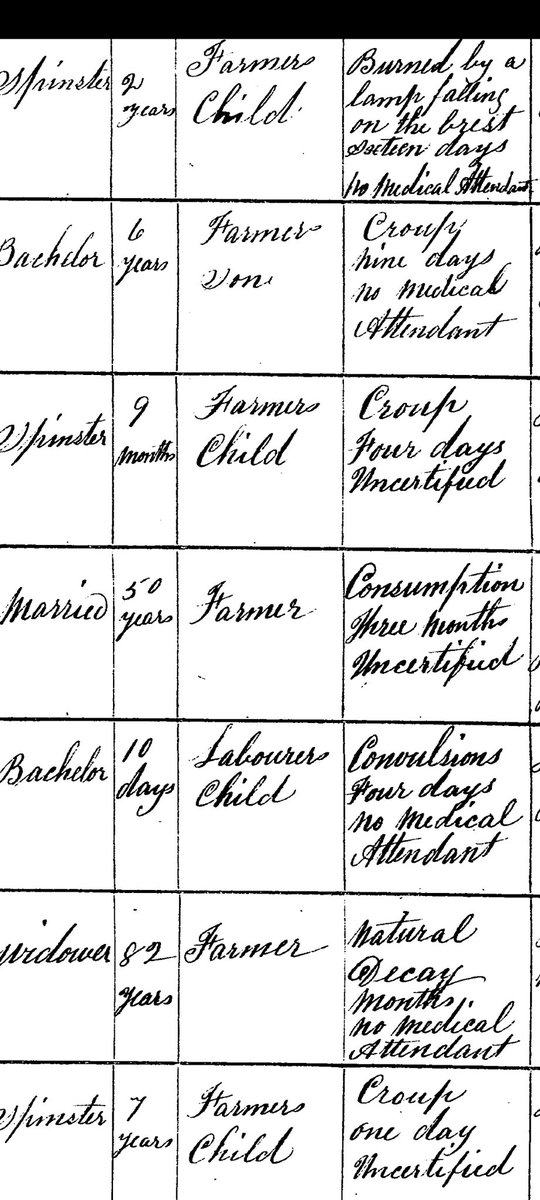 Spinster
2
years
Farmers
Child
Burned by a
lamp falling
on the brest
Sixteen days
no Medical Attendant
Bachelor
6
years
Farmer
Son
Croup
nine days
no medical
Attendant
Spinster
9
months
Farmers
Child
Croup
Four days
Uncertified
Married
50
years
Farmer
Consumption
Three Months
Uncertified
Bachelor
10
days
Labourers
Child
Convulsions
Four days
no medical
Attendant
Widower
82
years
Farmer
Natural
Decay
Months
no medical
Attendant
Spinster
7
years
Farmers
Child
Croup
one day
Uncertified